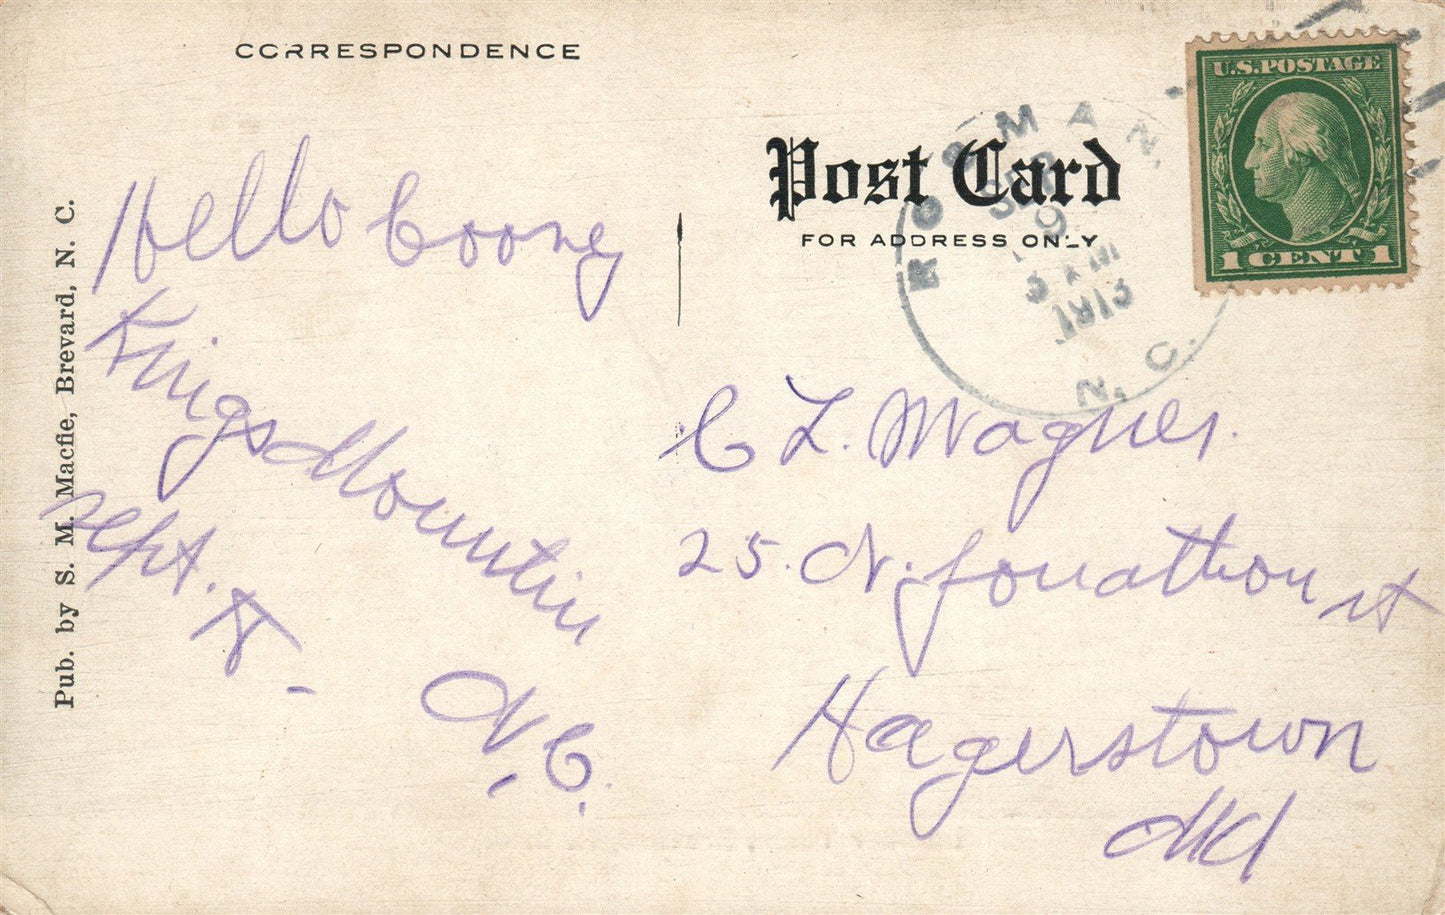 CORRESPONDENCE
Hello Coony
Kings Mountin
Sept. 8-
N. C.
Pub. by S. M. Macfie, Brevard, N. C.
Post Card
FOR ADDRESS ONLY
ROSMAN, N. C.
SEP
9
1913
U.S. POSTAGE
1 CENT 1
C L. Wagner.
25. N. Jonathon st
Hagerstown
Md